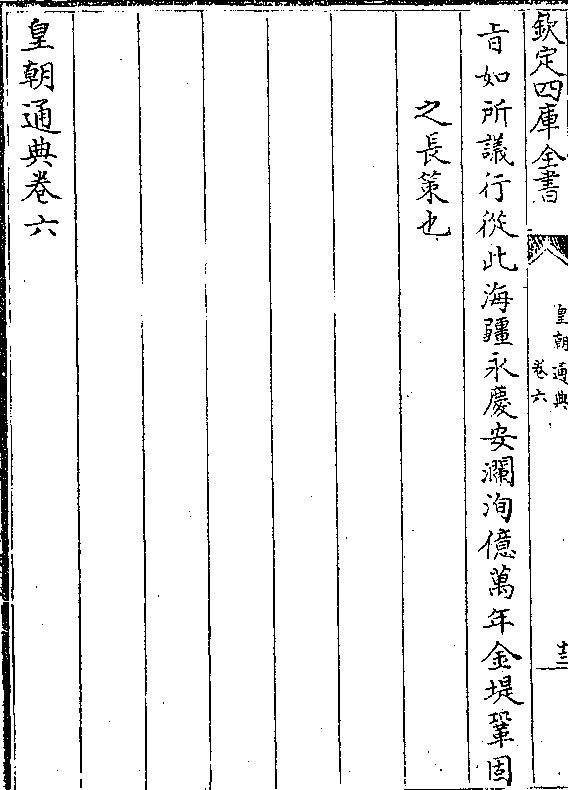 欽定四庫全書
皇朝通典
卷六
十三
旨如所議行從此海疆永慶安瀾洵億萬年金堤鞏固
之長策也
皇朝通典卷六